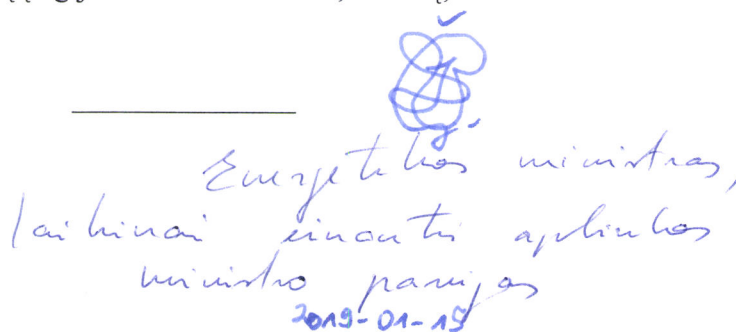 Energetikos ministras,
laikinai einantis aplinkos
ministro pareigas
2019-01-15